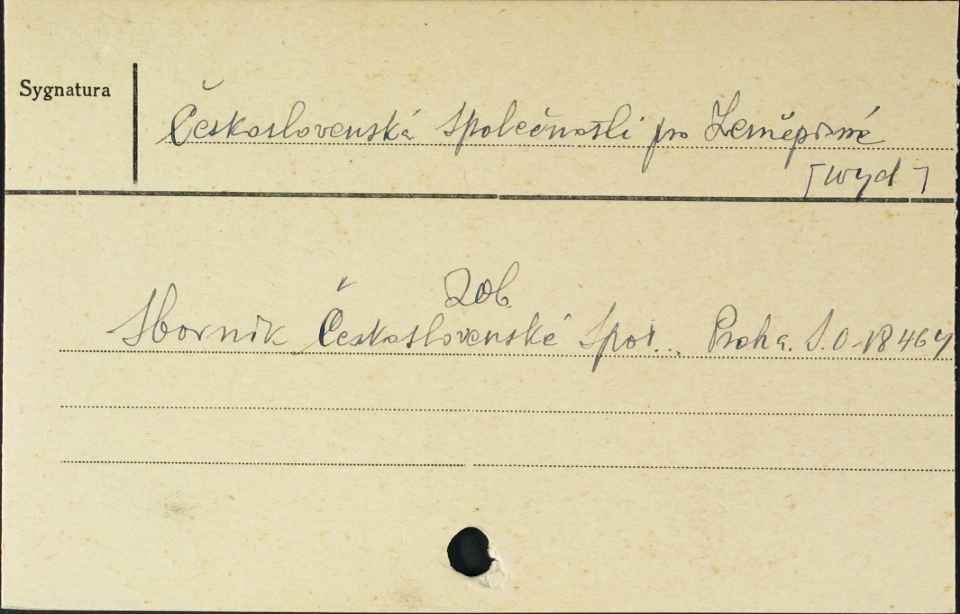 Sygnatura
Československá Společnosti pro Zeměpisné
[wyd]
Zob.
Sbornik Československé Spol... Praha. S.O-18464